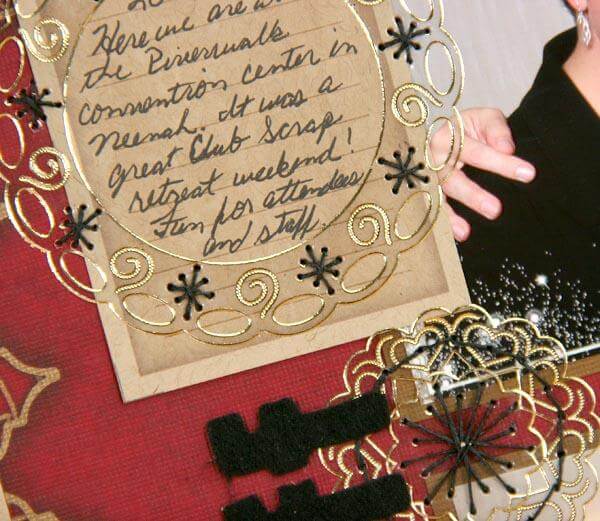 Here we are
the Riverwalk
convention center in
Neenah. It was a
great Club Scrap
retreat weekend!
Fun for attendees
and staff.